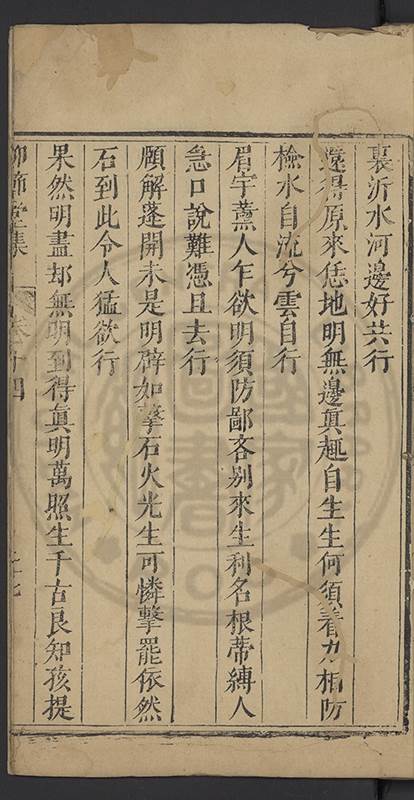 裏沂水河邊好共行
還得原來恁地明無邊眞趣自生生何須着力相防
檢水自流兮雲自行
眉宇薰人乍欲明須防鄙吝别來生利名根蒂縳人
急口說難憑且去行
願解蓬開未是明辟如擊石火光生可憐擊罷依然
石到此令人猛欲行
果然明盡却無明到得眞明萬照生千古良知孩提
集
卷十四